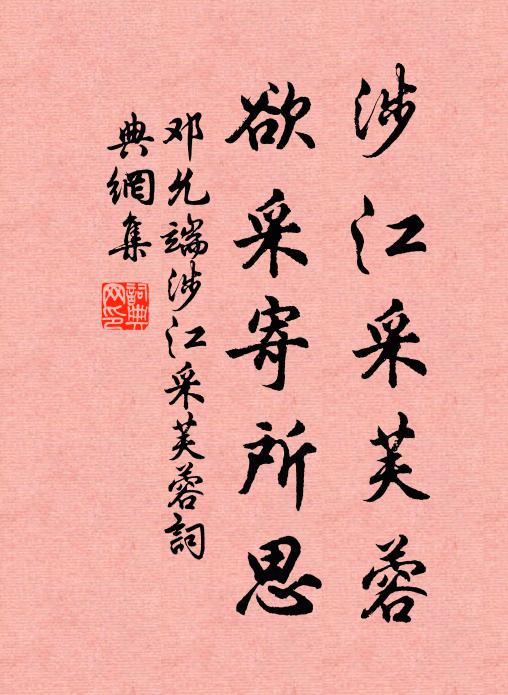 涉江采芙蓉
欲采寄所思
邓允端涉江采芙蓉詞
典網集
詞典網印